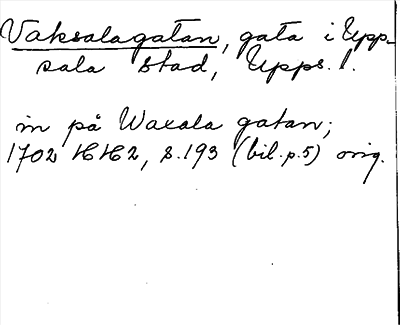 Vaksalagatan, gata i Upp-
sala stad, Upps. l.
in på Waxala gatan;
1702 HH2, s.193 (bil.p.5) orig.